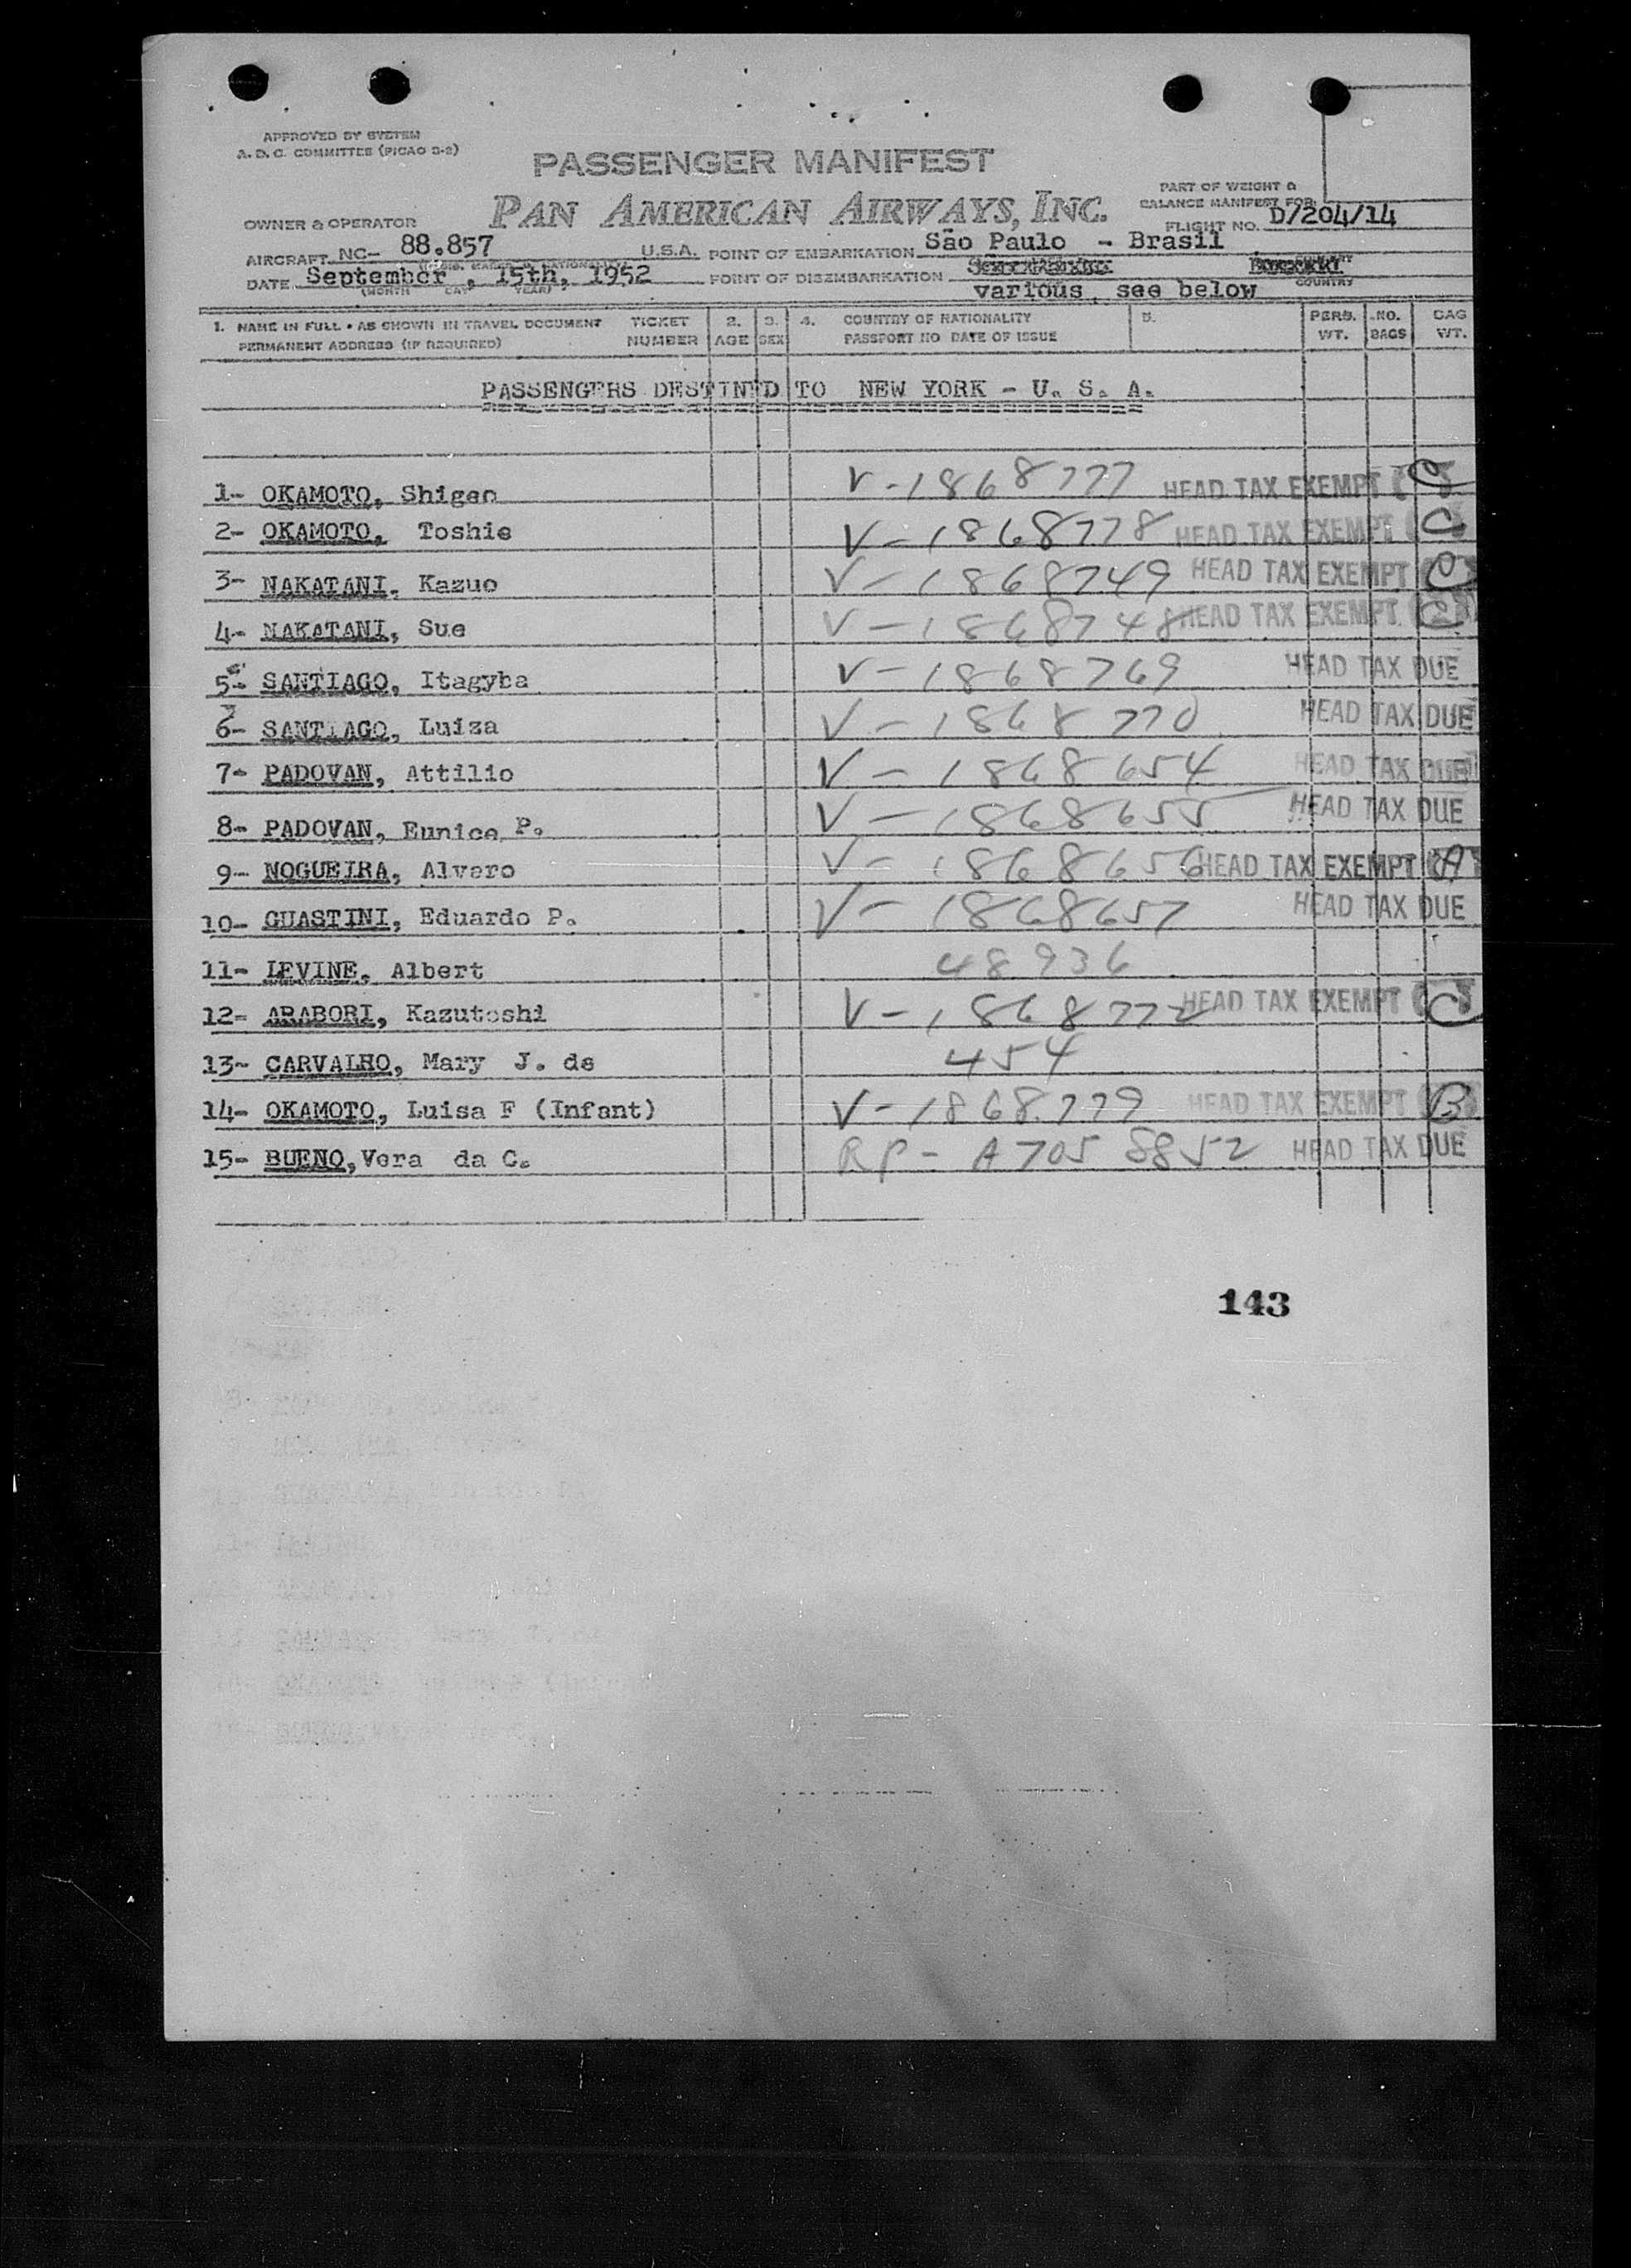 APPROVED BY SYSTEM
A. D. C. COMMITTEE (PICAO 3-2)
PASSENGER MANIFEST
PART OF WEIGHT &
BALANCE MANIFEST FOR
OWNER & OPERATOR PAN AMERICAN AIRWAYS, INC. FLIGHT NO. D/204/14
AIRCRAFT NC- 88.857 U.S.A. POINT OF EMBARKATION São Paulo - Brasil
DATE September, 15th, 1952 POINT OF DISEMBARKATION
(MONTH DAY YEAR) various, see below COUNTRY
1. NAME IN FULL • AS SHOWN IN TRAVEL DOCUMENT TICKET 2. 3. 4. COUNTRY OF NATIONALITY 5. PERS. NO. BAG
PERMANENT ADDRESS (IF REQUIRED) NUMBER AGE SEX PASSPORT NO DATE OF ISSUE WT. BAGS WT.
PASSENGERS DESTINED TO NEW YORK - U. S. A.
1- OKAMOTO, Shigeo V-1868777 HEAD TAX EXEMPT C
2- OKAMOTO, Toshie V-1868778 HEAD TAX EXEMPT C
3- NAKATANI, Kazuo V-1868749 HEAD TAX EXEMPT C
4- NAKATANI, Sue V-1868748 HEAD TAX EXEMPT C
5- SANTIAGO, Itagyba V-1868769 HEAD TAX DUE
6- SANTIAGO, Luiza V-1868770 HEAD TAX DUE
7- PADOVAN, Attilio V-1868654 HEAD TAX DUE
8- PADOVAN, Eunice P. V-1868655 HEAD TAX DUE
9- NOGUEIRA, Alvaro V-1868656 HEAD TAX EXEMPT A
10- GUASTINI, Eduardo P. V-1868657 HEAD TAX DUE
11- LEVINE, Albert 48936
12- ARABORI, Kazutoshi V-1868772 HEAD TAX EXEMPT C
13- CARVALHO, Mary J. de 454
14- OKAMOTO, Luisa F (Infant) V-1868779 HEAD TAX EXEMPT B
15- BUENO, Vera da C. RP-A705 8852 HEAD TAX DUE
143